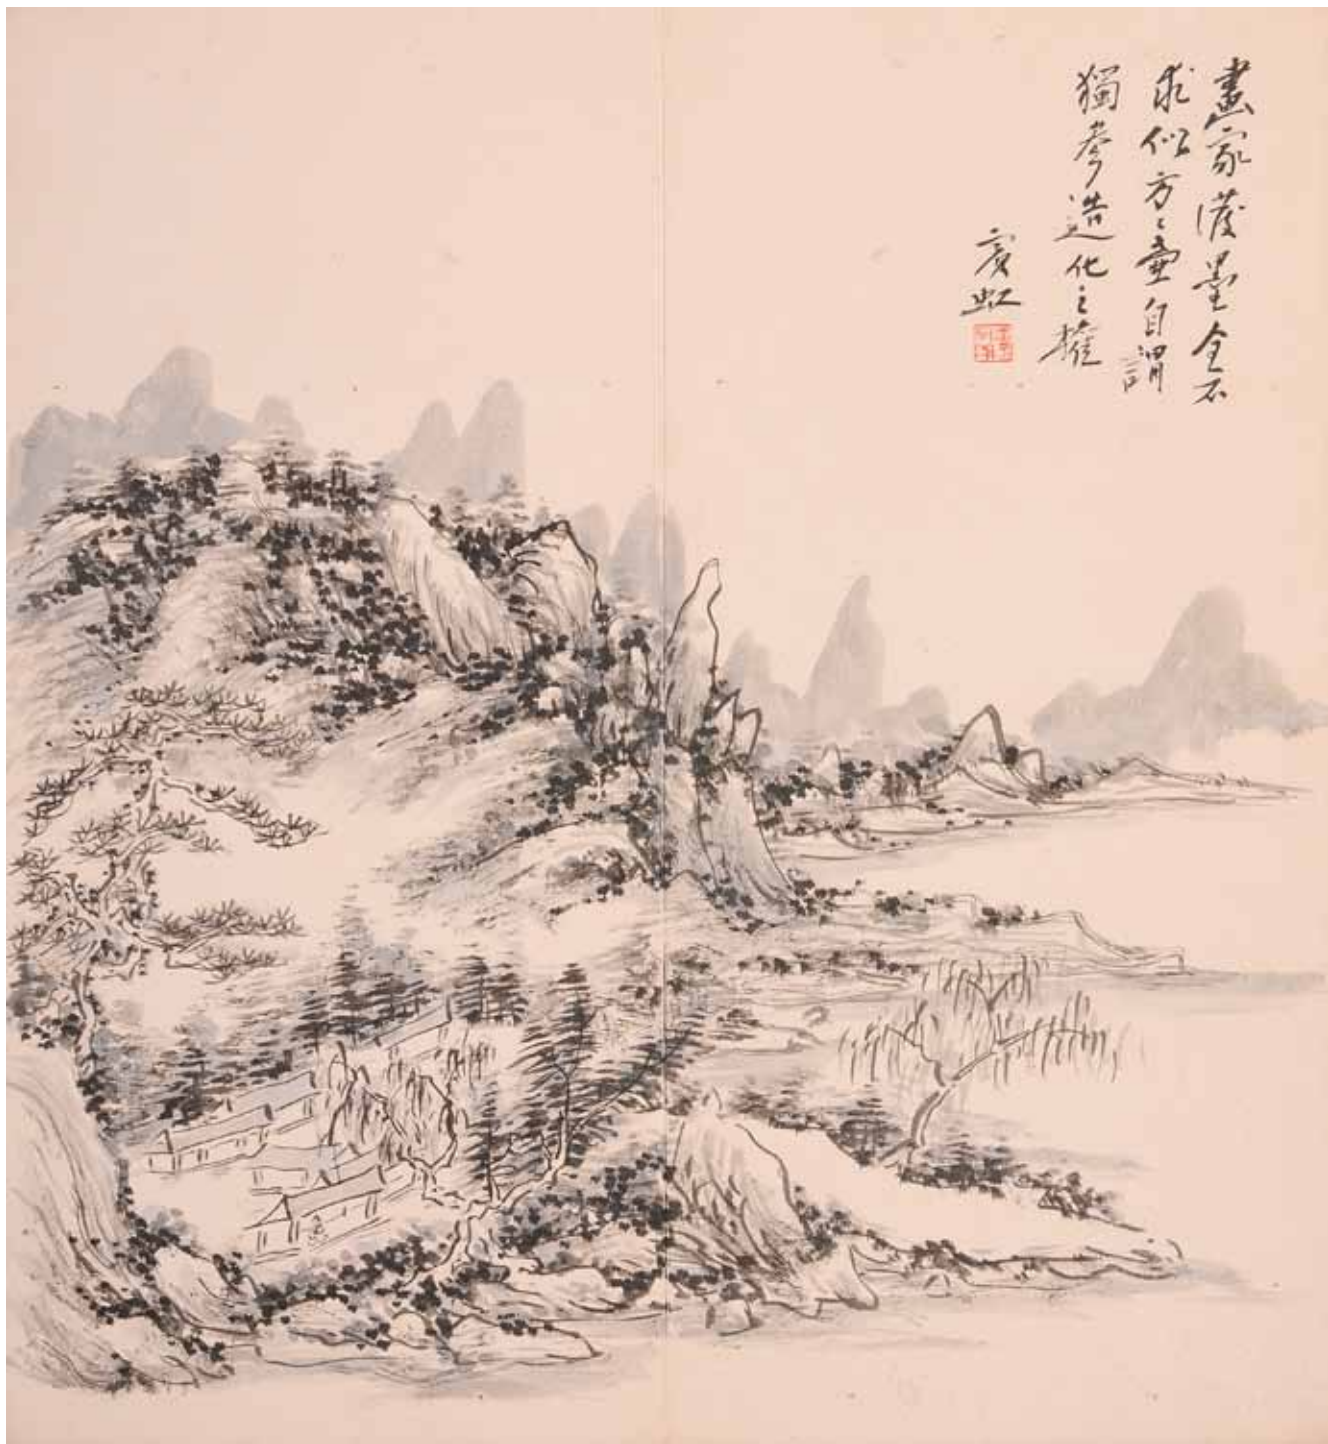 畫家潑墨全不
求似方方壺自謂
獨參造化之權
賓虹